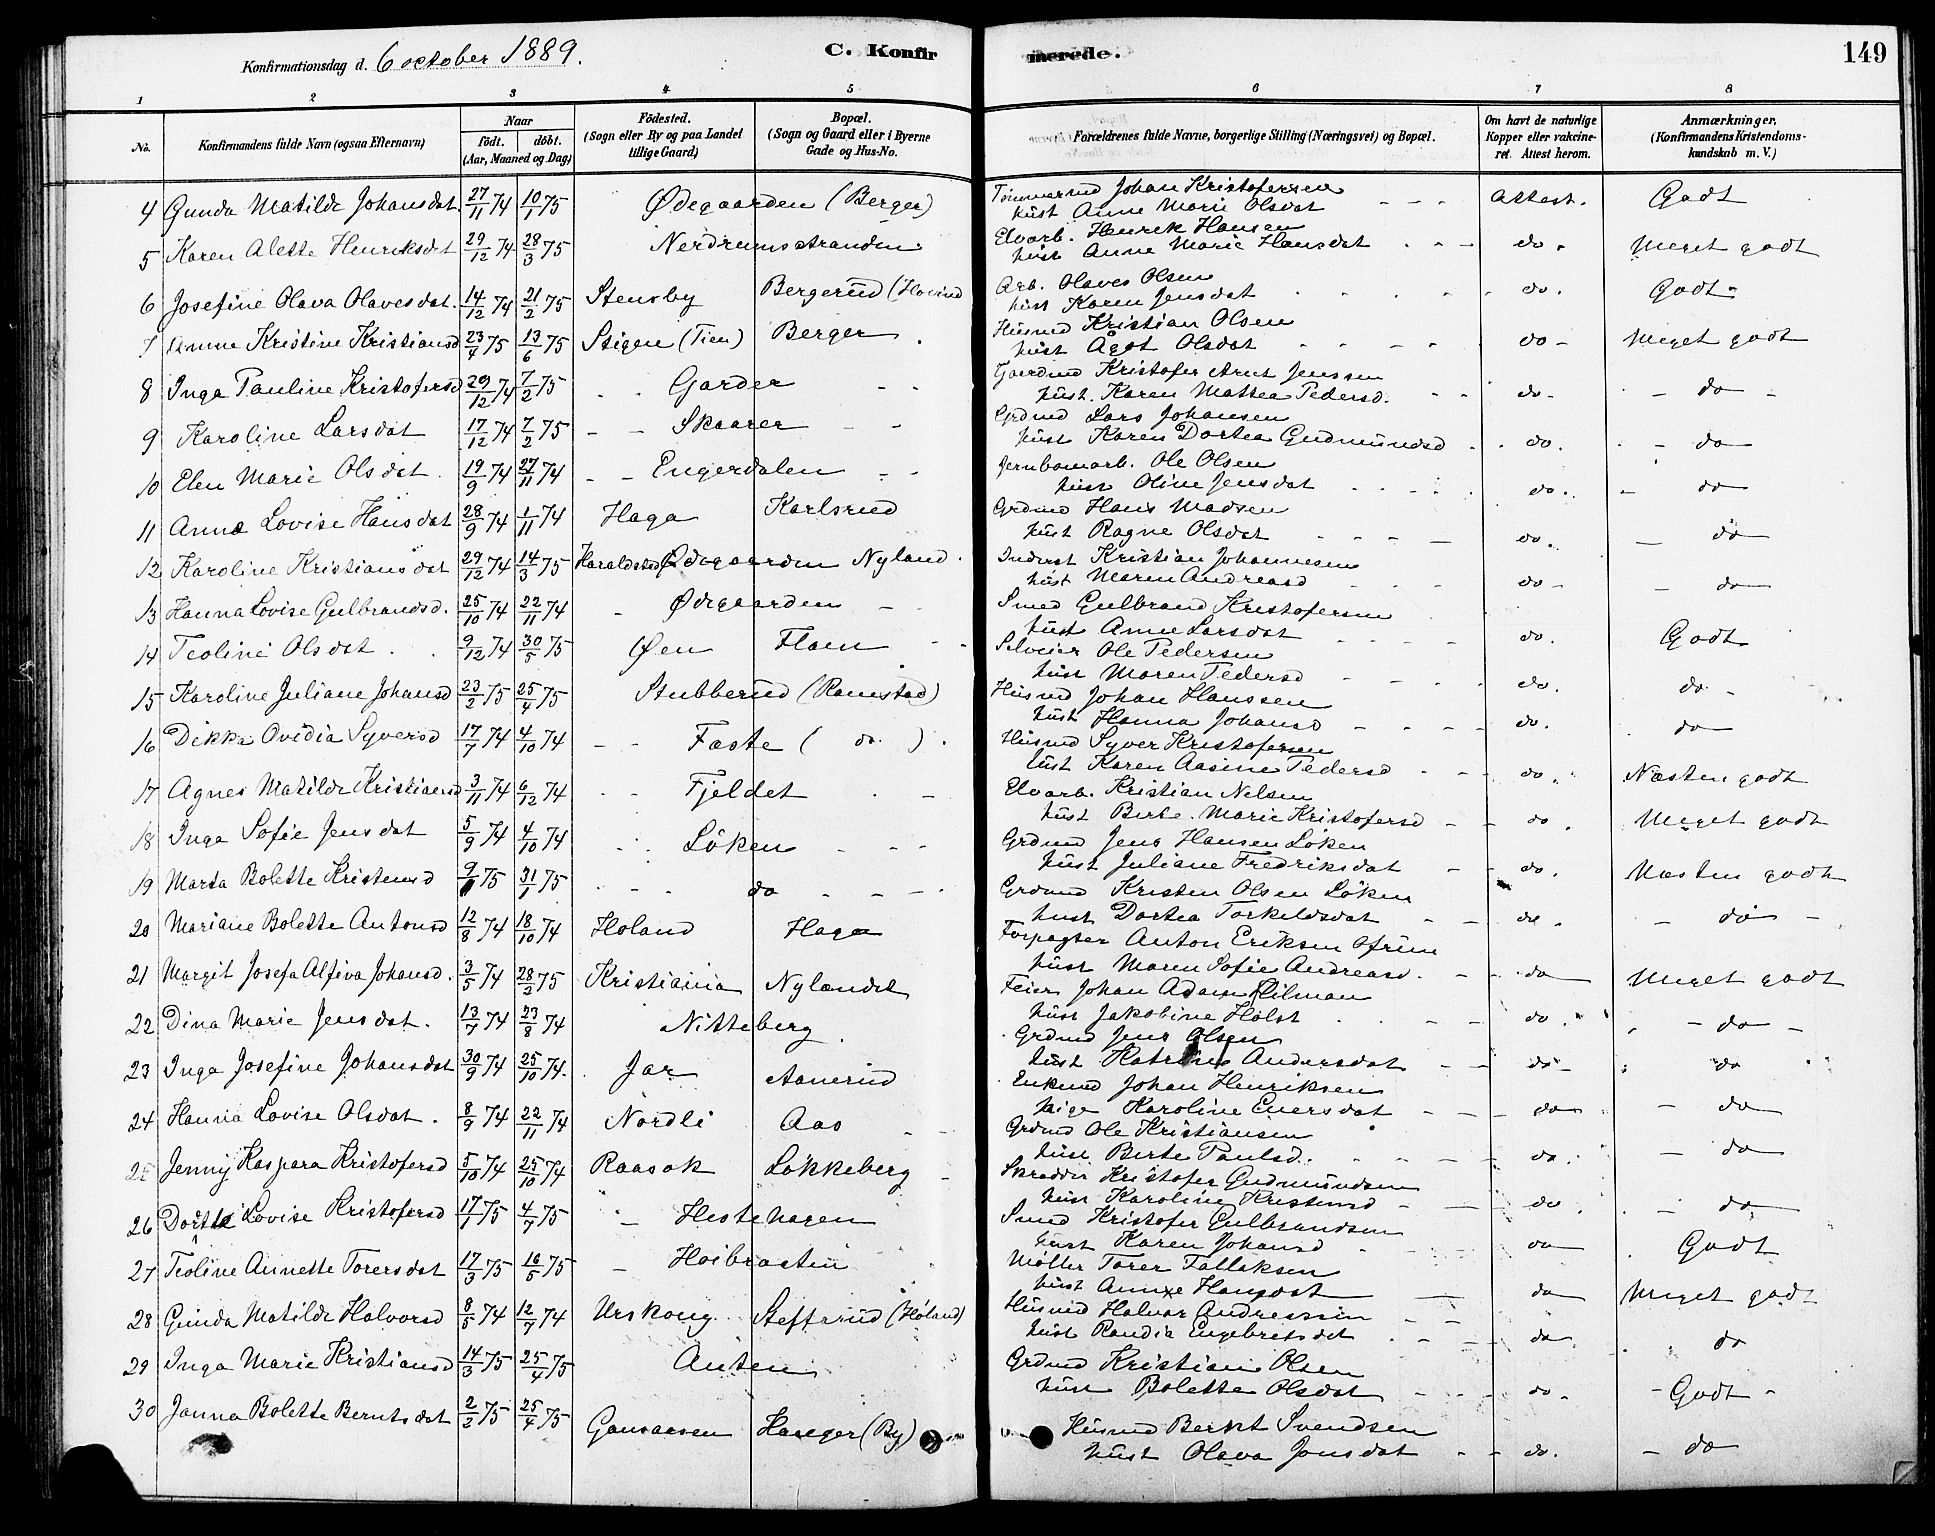 Konfirmationsdag d. 6 october 1889.
C. Konfirmerede.
149
1 2 3 4 5 6 7 8
No.
Konfirmandens fulde Navn (ogsaa Efternavn)
Naar
født. døbt.
(Aar, Maaned og Dag)
Fødested.
(Sogn eller By og paa Landet
tillige Gaard)
Bopæl.
(Sogn og Gaard eller i Byerne
Gade og Hus-No.
Forældrenes fulde Navne, borgerlige Stilling (Næringsvei) og Bopæl.
Om havt de naturlige
Kopper eller vakcine-
ret. Attest herom.
Anmærkninger.
(Konfirmandens Kristendoms-
kundskab m. V.)
4 Gunda Matilde Johansdat. 27/11 74 10/1 75 Ødegaarden (Berger) Tømmermd Johan Kristofersen
hust Anne Marie Olsdat - - - Attest. Godt
5 Karen Alette Henriksdat 29/12 74 28/3 75 Nerdrumsstranden Elvarb. Henrik Hansen
hust Anne Marie Hansdat - - - do. Meget godt
6 Josefine Olava Olavesdat. 14/12 74 21/2 75 Stensby Bergerud (Hovind Arb. Olaves Olsen
hust Karen Jensdat do. Godt
7 Anne Kristine Kristiansd 23/4 75 13/6 75 Stigen (Tien) Berger Husmd Kristian Olsen
hust Ågot Olsdat do - Meget godt
8 Inga Pauline Kristofersd 29/12 74 7/2 75 Garder Gaardmd Kristofer Arnt Jenssen
hust. Karen Mattea Pedersd. do - - do -
9 Karoline Larsdat 17/12 74 7/2 75 - - Skaarer - - Grdmd Lars Johansen
hust Karen Dortea Gudmundsd do. - do
10 Elen Marie Olsdat. 19/9 74 27/11 74 - - Engerdalen - - Jernbanearb. Ole Olsen
hust Oline Jensdat do. - do
11 Anna Lovise Hansdat 28/9 74 1/11 74 Haga Karlsrud Grdmd Hans Madsen
hust Ragne Olsdat do. - do
12 Karoline Kristiansdat 29/12 74 14/3 75 Ødegaarden Nyland. Inderst Kristian Johannesen
hust Maren Andreasd do - - do
13 Hanna Lovise Gulbrandsd. 25/10 74 22/11 74 - Ødegaarden - Smed Gulbrand Kristofersen
hust Anne Larsdat do. Godt
14 Teoline Olsdat. 9/12 74 30/5 75 Øen Floen Selveier Ole Pedersen
hust Maren Pedersd do. do -
15 Karoline Juliane Johansd 23/2 75 25/4 75 Stubberud (Ramstad) Husmd Johan Hanssen
hust Hanna Johansd do. do
16 Dikka Ovidia Syversd 17/7 74 4/10 74 - - Faste ( do. ). Husmd Syver Kristofersen
hust Karen Aasine Pedersd do. Næsten godt
17 Agnes Matilde Kristiansd 3/11 74 6/12 74 - - Fjeldet - - Elvarb. Kristian Nelsen
hust Berte Marie Kristofersd - - do. Meget godt
18 Inga Sofie Jensdat 5/9 74 4/10 74 Løken - - - Grdmd Jens Hansen Løken
hust Juliane Fredriksdat - - do. Næsten godt
19 Marta Bolette Kristensd 75 31/1 75 do - - - Grdmd Kristen Olsen Løken
hust Dortea Torkeldsdat - - do. - do -
20 Mariane Bolette Antonsd 12/8 74 18/10 74 Holand Haga Forpagter Anton Eriksen
hust Maren Sofie Andreasd. - - do Meget godt
21 Margit Josefa Alfiva Johansd. 3/5 74 28/2 75 Kristiania Nylandet Feier Johan Adam
hust Jakobine Holst - - do. - do -
22 Dina Marie Jensdat. 13/7 74 23/8 74 Nitteberg Grdmd Jens Olsen
hust Andersdat - - do - do
23 Inga Josefine Johansdat 30/9 74 25/10 74. Jar Aanerud Enkemd Johan Henriksen
Pige Karoline Eversdat - - do - do
24 Hanna Lovise Olsdat. 8/9 74 22/11 74 Nordli Aas Grdmd Ole Kristiansen
hust Berte Paulsd. do. - do
25 Jenny Kaspara Kristofersd 5/10 74 25/10 74 Raasok Løkkeberg Skrædder Kristofer Gudmundsen
hust Karoline Kristensd - - do - do
26 Lovise Kristofersd 17/1 75 4/7 75 - Hestehagen Smed Kristofer Gulbrandsen
hust Karen Johansd do Godt
27 Teoline Annette Torersdat 17/3 75 16/5 75 - Høibraaten Møller Torer Fallaksen
hust do Meget godt
28 Gunda Matilde Halvorsd 8/5 74 12/7 74 Urskoug (Høland) Husmd Halvor Andreassen
hust Randia Engebretsdat do do
29 Inga Marie Kristiansd 14/3 75 25/4 75 Auten Grdmd Kristian Olsen
hust Bolette Olsdat do. - Godt -
30 Janna Bolette Berntsdat 2/2 75 25/4 75 (By) Husmd Bernt Svendsen
hust Olava Jonsdat - - do. - do